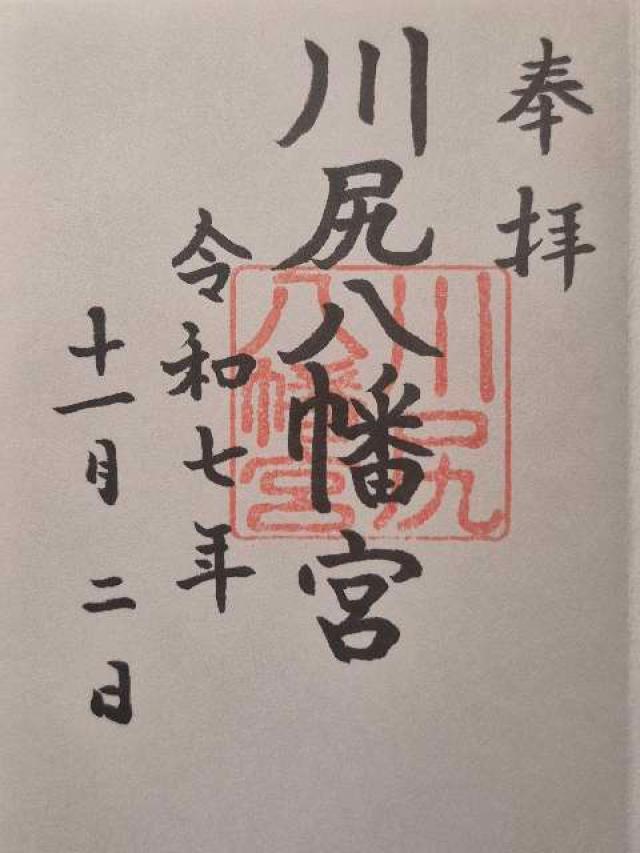 奉拝
川尻八幡宮
川尻
八幡宮
令和七年
十一月二日